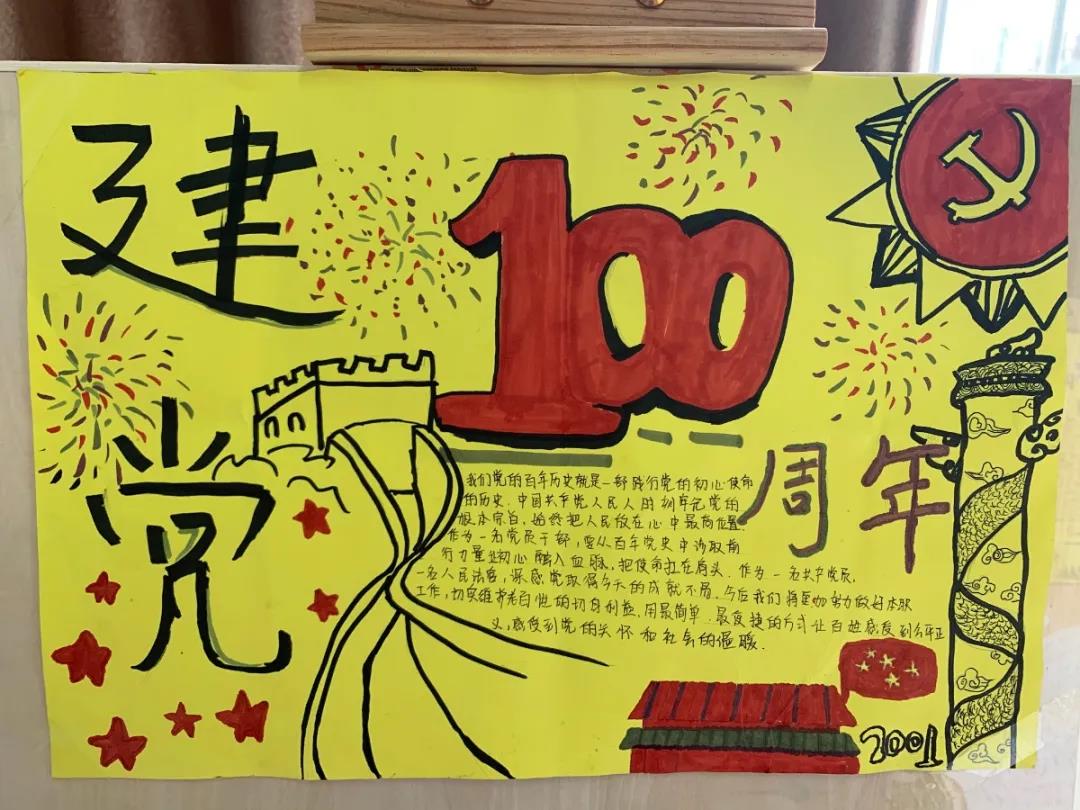 建
党
100
周年
我们党的百年历史就是一部践行党的初心使命
的历史.中国共产党人民人的刻牢记党的
根本宗旨,始终把人民放在心中最高位置.
作为一名党员干部,要从百年党史中汲取前
行力量把初心融入血脉,把使命扛在肩头.作为一名共产党员,
一名人民法官,深感党取得今天的成就不易.今后我们将更加努力做好本职
工作,切实维护老百姓的切身利益,用最简单.最便捷的方式让百姓感受到公平正
义,感受到党的关怀和社会的温暖.
2001